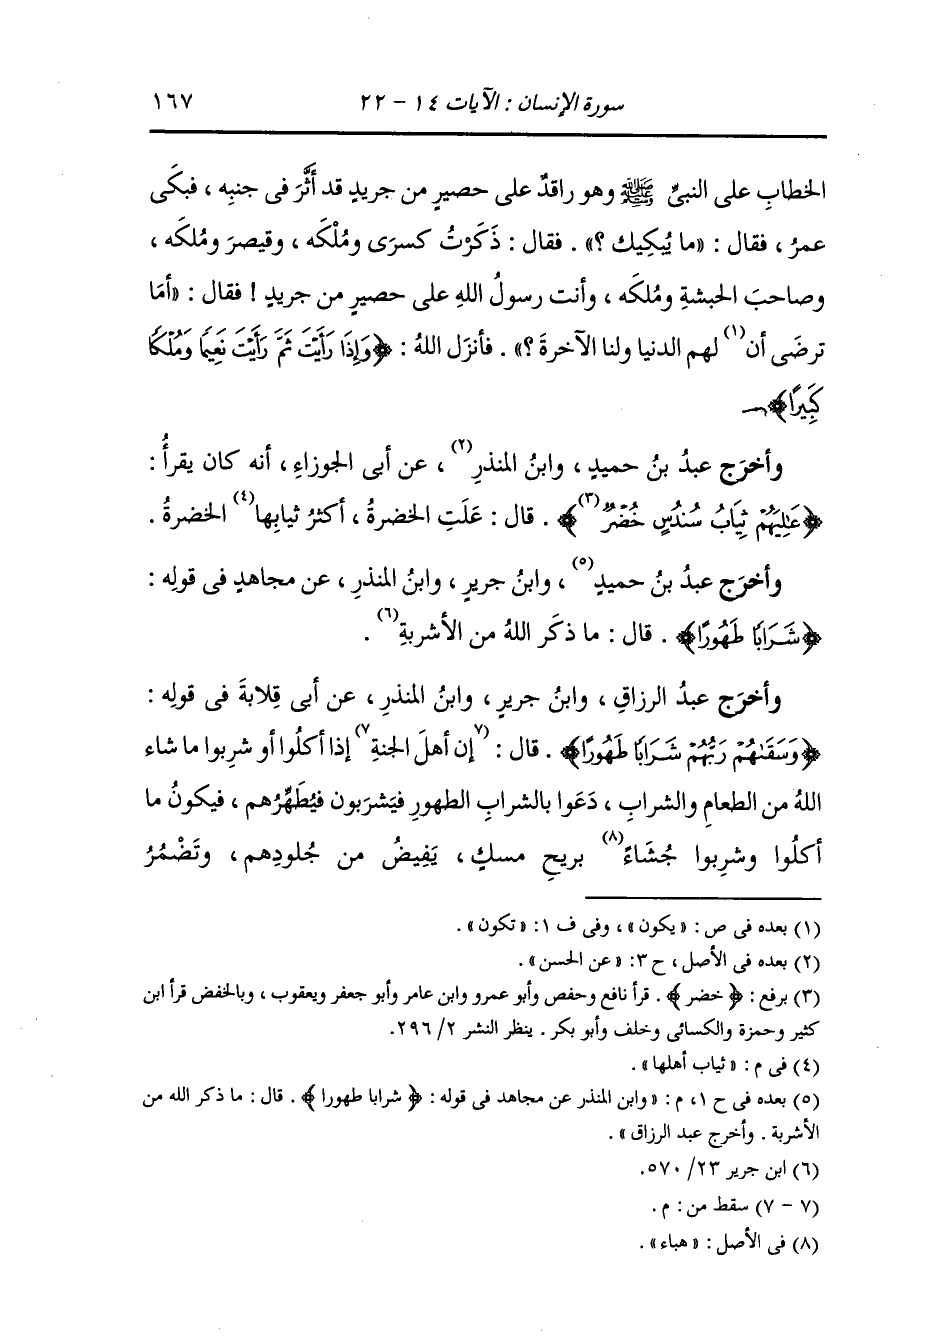 سورة الإنسان : الآيات ١٤ - ٢٢ ١٦٧
الخطابِ على النبيِّ ﷺ وهو راقدٌ على حصيرٍ من جريدٍ قد أثَّرَ فى جنبِه ، فبكَى
عمرُ ، فقال : «ما يُبكِيك ؟» . فقال : ذَكَرْتُ كسرَى ومُلْكَه ، وقيصرَ ومُلكَه ،
وصاحبَ الحبشةِ ومُلكَه ، وأنت رسولُ اللهِ على حصيرٍ من جريدٍ ! فقال : «أمَا
ترضَى أن(١) لهم الدنيا ولنا الآخرةَ ؟» . فأنزَل اللهُ : ﴿وَإِذَا رَأَيْتَ ثَمَّ رَأَيْتَ نَعِيمًا وَمُلْكًا
كَبِيرًا﴾
وأخرَج عبدُ بنُ حميدٍ ، وابنُ المنذرِ(٢) ، عن أبى الجوزاءِ ، أنه كان يقرأُ :
﴿عَٰلِيَهُمْ ثِيَابُ سُندُسٍ خُضْرٌ(٣)﴾ . قال : عَلَتِ الخضرةُ ، أكثرُ ثيابِها(٤) الخضرةُ .
وأخرَج عبدُ بنُ حميدٍ(٥) ، وابنُ جريرٍ ، وابنُ المنذرِ ، عن مجاهدٍ فى قولِه :
﴿شَرَابًا طَهُورًا﴾ . قال : ما ذكَر اللهُ من الأشربةِ(٦) .
وأخرَج عبدُ الرزاقِ ، وابنُ جريرٍ ، وابنُ المنذرِ ، عن أبى قِلابةَ فى قولِه :
﴿وَسَقَىٰهُمْ رَبُّهُمْ شَرَابًا طَهُورًا﴾ . قال : (٧إن أهلَ الجنةِ٧) إذا أكلُوا أو شرِبوا ما شاء
اللهُ من الطعامِ والشرابِ ، دَعَوا بالشرابِ الطهورِ فيَشرَبون فيُطَهِّرُهم ، فيكونُ ما
أكلُوا وشرِبوا جُشَاءً(٨) بريحِ مسكٍ ، يَفِيضُ من جُلودِهم ، وتَضْمُرُ
(١) بعده فى ص : «يكون» ، وفى ف ١ : «تكون» .
(٢) بعده فى الأصل ، ح ٣: «عن الحسن» .
(٣) برفع : ﴿ خضر ﴾ . قرأ نافع وحفص وأبو عمرو وابن عامر وأبو جعفر ويعقوب ، وبالخفض قرأ ابن
كثير وحمزة والكسائى وخلف وأبو بكر . ينظر النشر ٢/ ٢٩٦.
(٤) فى م : «ثياب أهلها» .
(٥) بعده فى ح ١، م : «وابن المنذر عن مجاهد فى قوله : ﴿ شرابا طهورا ﴾ . قال : ما ذكر الله من
الأشربة . وأخرج عبد الرزاق» .
(٦) ابن جرير ٢٣/ ٥٧٠.
(٧ - ٧) سقط من : م .
(٨) فى الأصل : «هباء» .